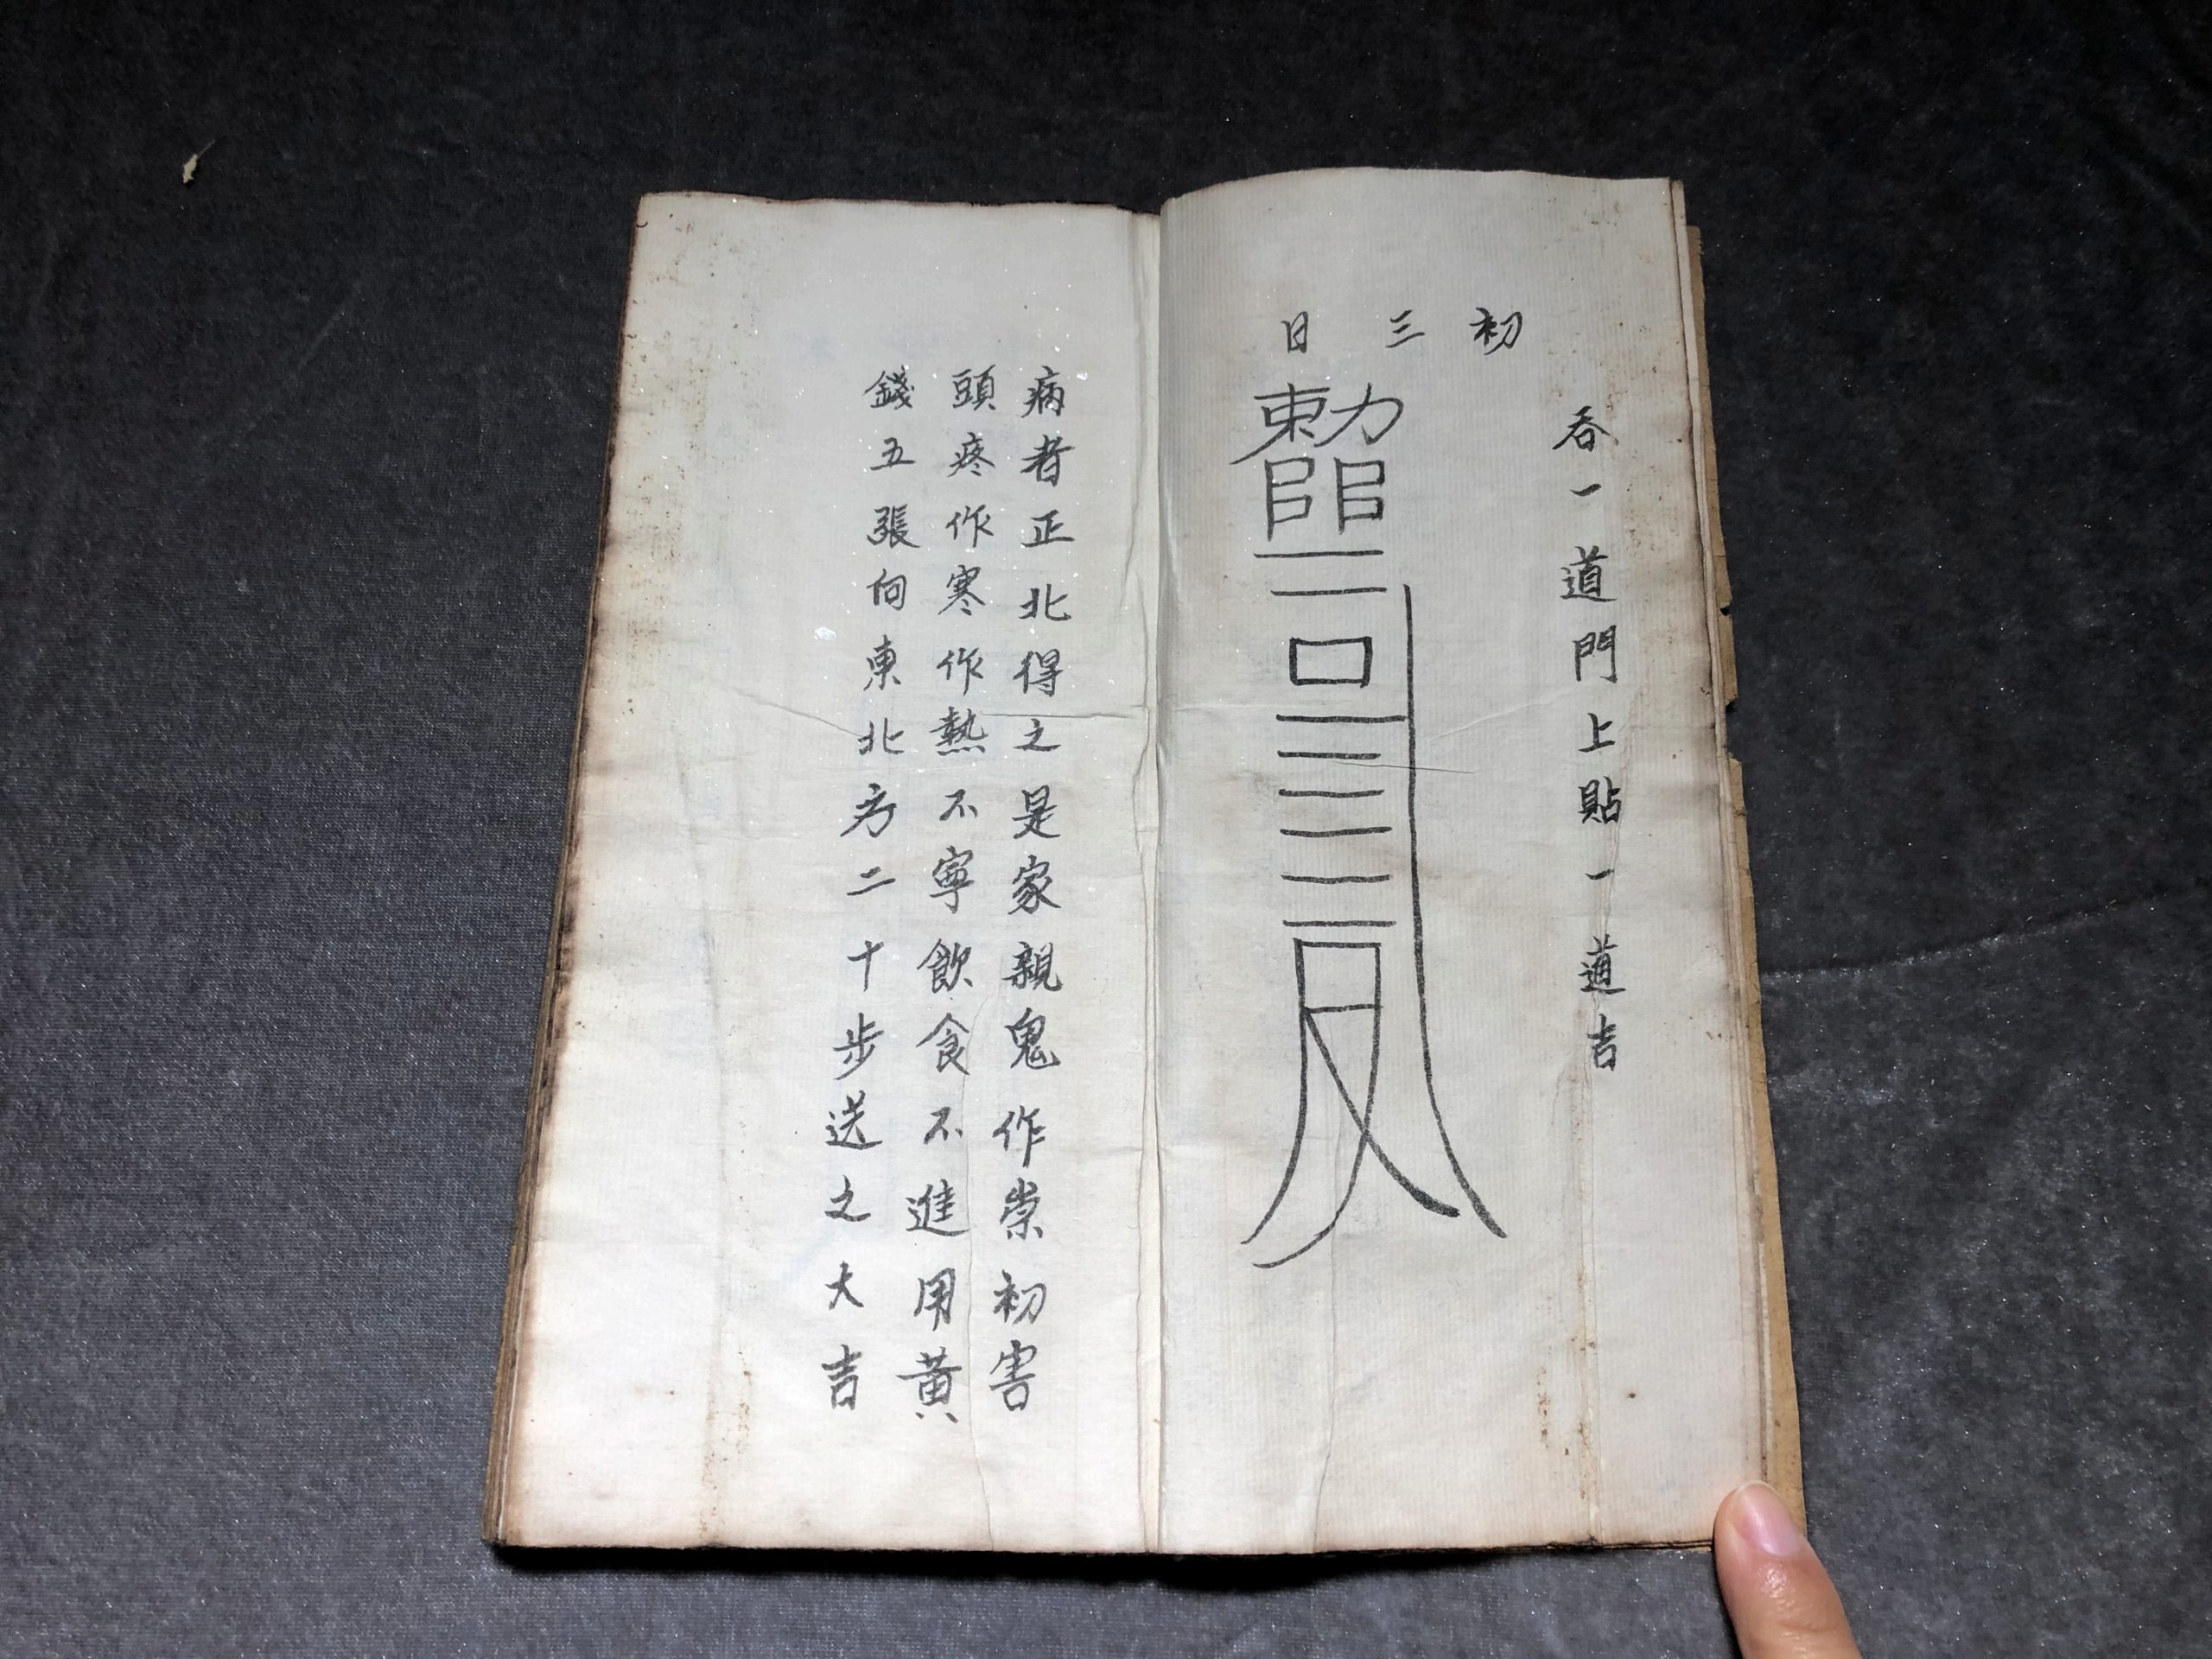 吞一道門上貼一道吉
初三日
勅
病者正北得之是家親鬼作祟初害
頭疼作寒作熱不寧飲食不進用黃
錢五張向東北方二十步送之大吉